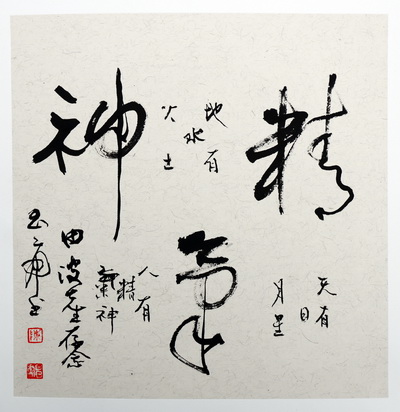 精
天有
日
月星
氣
地有
水
火土
人有
精
氣神
神
波先生存念